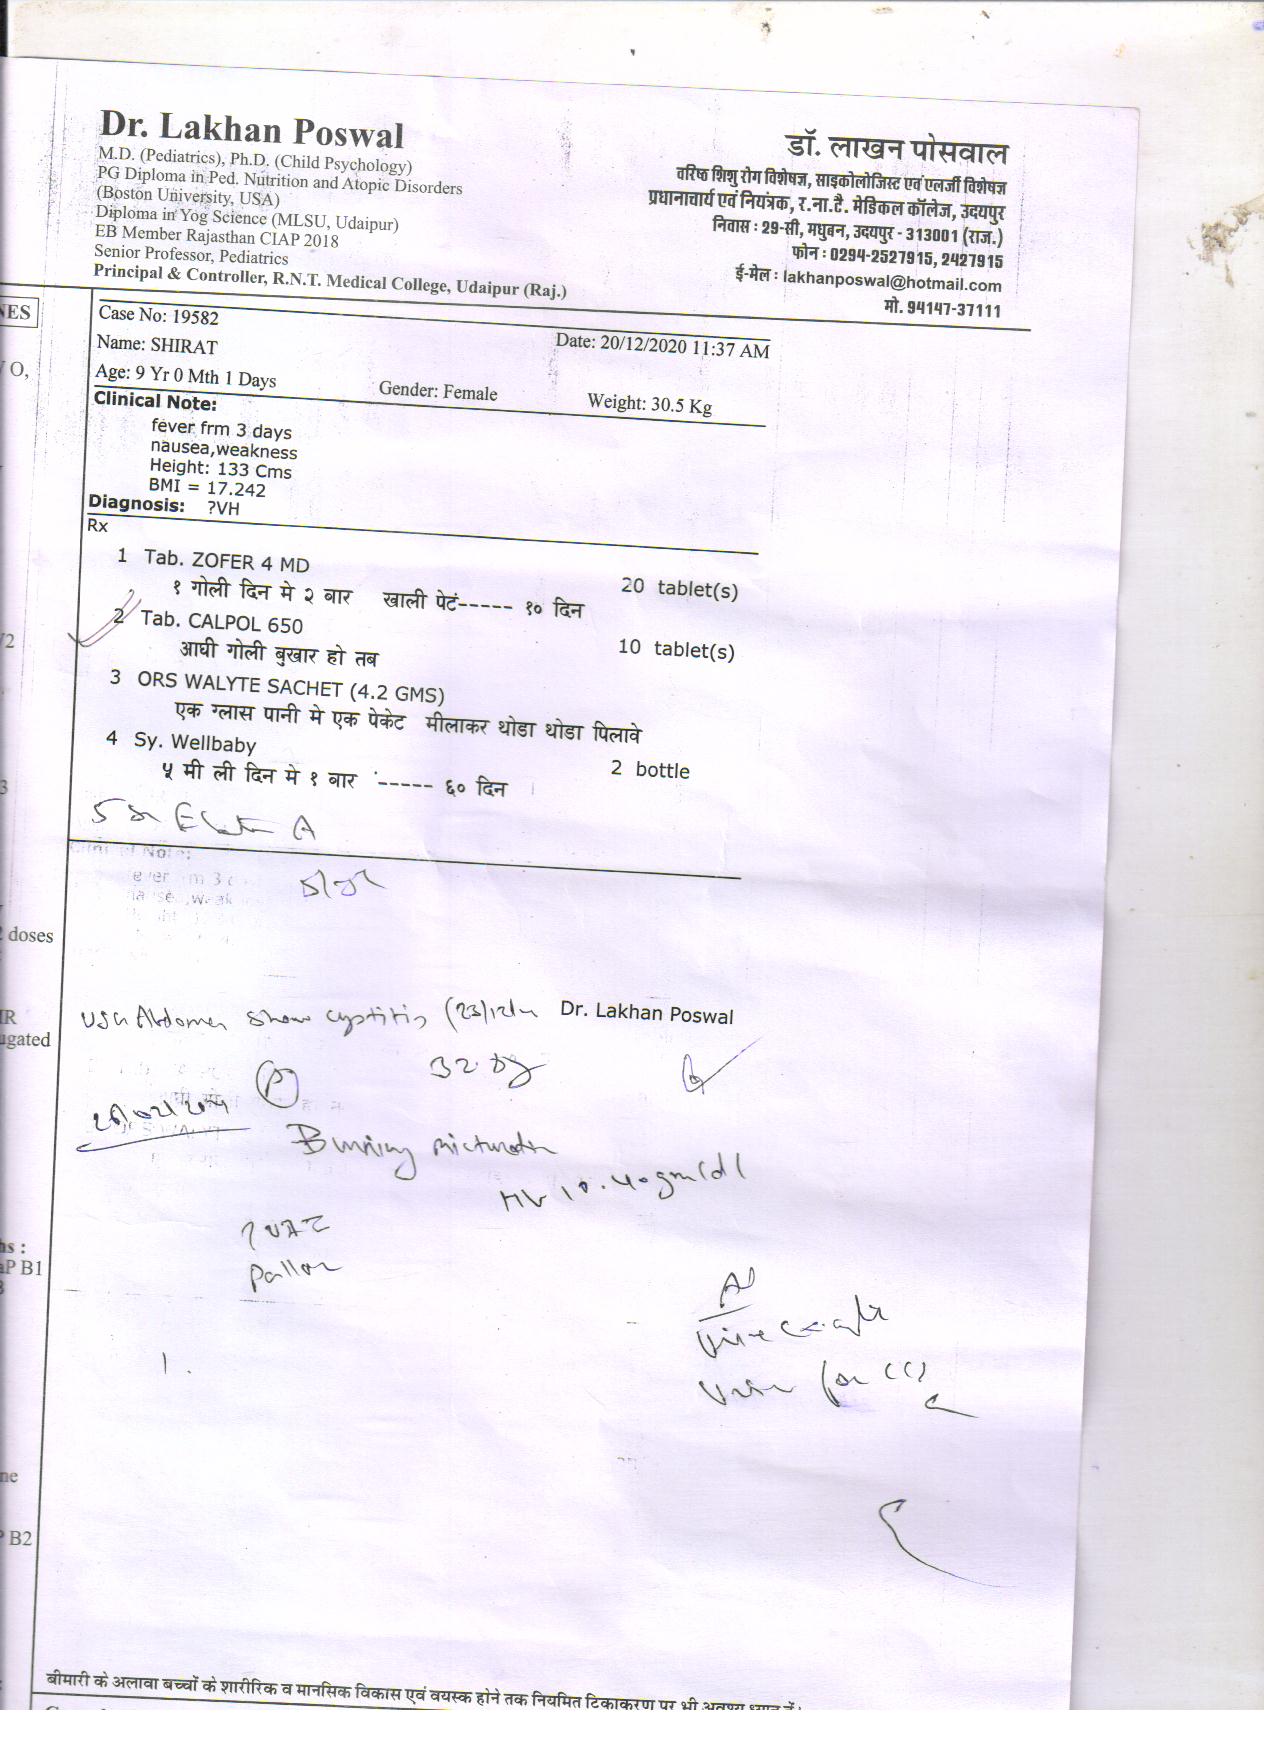 Dr. Lakhan Poswal
M.D. (Pediatrics), Ph.D. (Child Psychology)
PG Diploma in Ped. Nutrition and Atopic Disorders
(Boston University, USA)
Diploma in Yog Science (MLSU, Udaipur)
EB Member Rajasthan CIAP 2018
Senior Professor, Pediatrics
Principal & Controller, R.N.T. Medical College, Udaipur (Raj.)
डॉ. लाखन पोसवाल
वरिष्ठ शिशु रोग विशेषज्ञ, साइकोलोजिस्ट एवं एलर्जी विशेषज्ञ
प्रधानाचार्य एवं नियंत्रक, र.ना.टै. मेडिकल कॉलेज, उदयपुर
निवास : 29-सी, मधुबन, उदयपुर - 313001 (राज.)
फोन : 0294-2527915, 2427915
ई-मेल : lakhanposwal@hotmail.com
मो. 94147-37111
NES
O,
/2
3
doses
IR
ugated
hs :
aP B1
3
ne
P B2
Case No: 19582
Date: 20/12/2020 11:37 AM
Name: SHIRAT
Age: 9 Yr 0 Mth 1 Days Gender: Female Weight: 30.5 Kg
Clinical Note:
fever frm 3 days
nausea,weakness
Height: 133 Cms
BMI = 17.242
Diagnosis: ?VH
Rx
1 Tab. ZOFER 4 MD 20 tablet(s)
१ गोली दिन मे २ बार खाली पेटं----- १० दिन
2 Tab. CALPOL 650 10 tablet(s)
आघी गोली बुखार हो तब
3 ORS WALYTE SACHET (4.2 GMS)
एक ग्लास पानी मे एक पेकेट मीलाकर थोडा थोडा पिलावे
4 Sy. Wellbaby 2 bottle
५ मी ली दिन मे १ बार ----- ६० दिन
5
A
USG Abdomen show cystitis (23/12/ Dr. Lakhan Poswal
32 kg
P
Burning micturation
Hb 10.40 gm/dl
Pallor
Adv
Urine
Urine for
1.
बीमारी के अलावा बच्चों के शारीरिक व मानसिक विकास एवं वयस्क होने तक नियमित टिकाकरण पर भी अवश्य ध्यान दें।